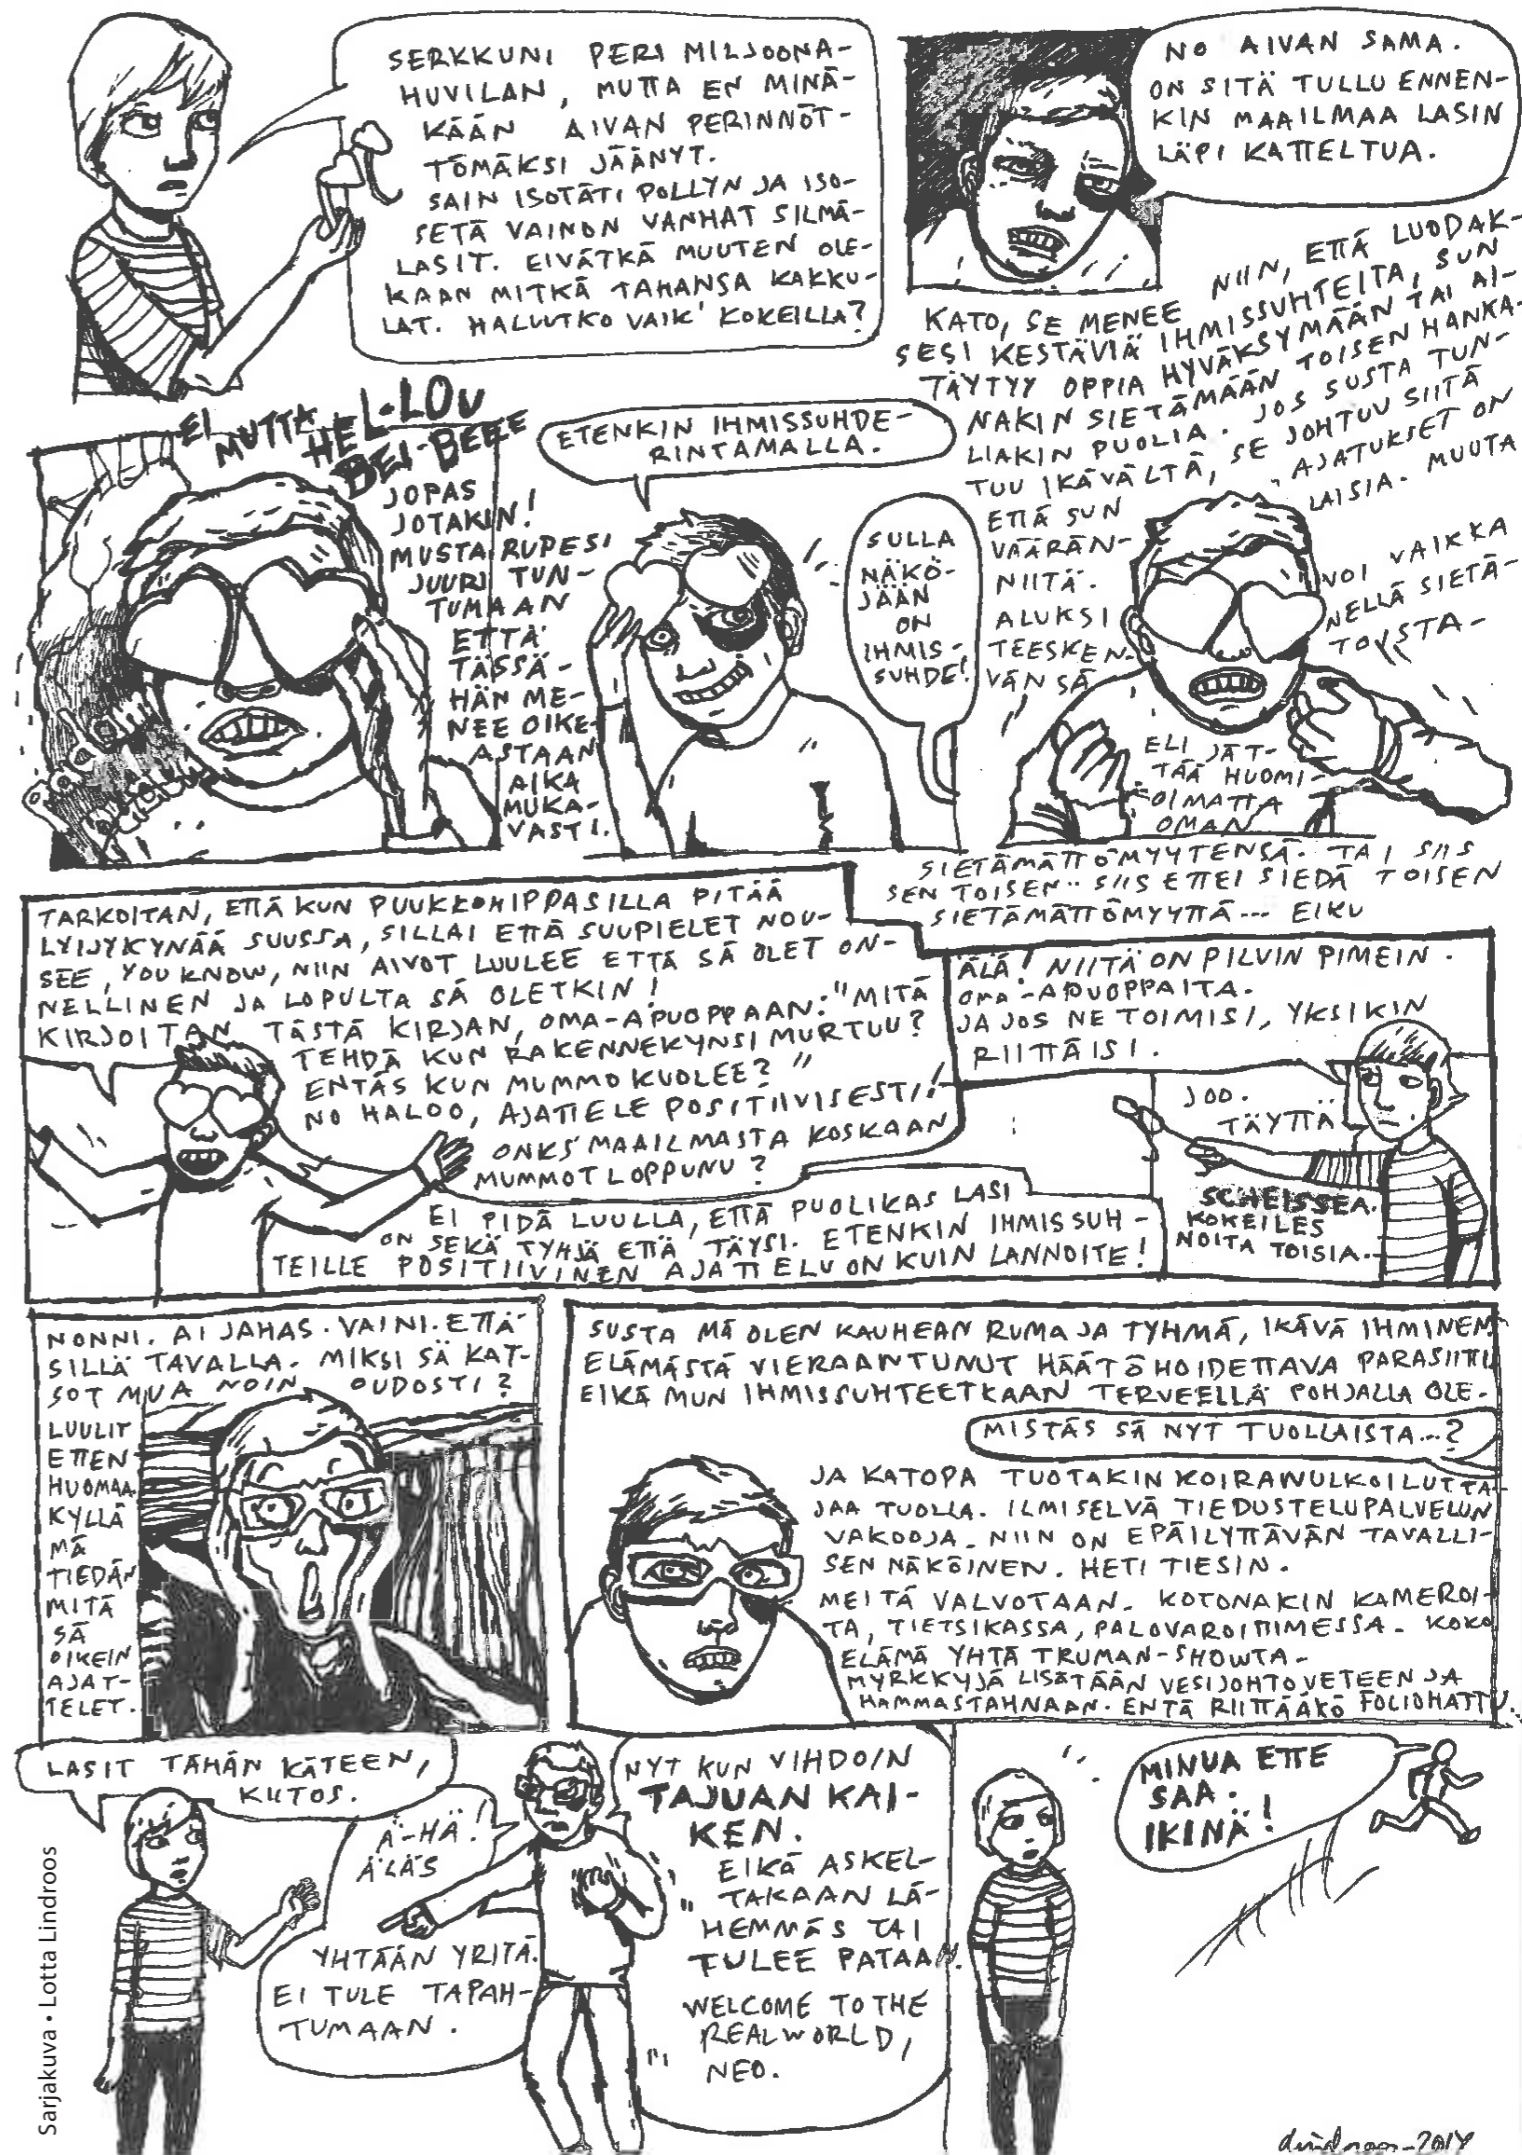 SERKKUNI PERI MILJOONA-
HUVILAN, MUTTA EN MINÄ-
KÄÄN AIVAN PERINNÖT-
TÖMÄKSI JÄÄNYT.
SAIN ISOTÄTI POLLYN JA ISO-
SETÄ VAINON VANHAT SILMÄ-
LASIT. EIVÄTKÄ MUUTEN OLE-
KAAN MITKÄ TAHANSA KAKKU-
LAT. HALUUTKO VAIK' KOKEILLA?
NO AIVAN SAMA.
ON SITÄ TULLU ENNEN-
KIN MAAILMAA LASIN
LÄPI KATTELTUA.
EI MUTTA HEL-LOU
BEI-BEEE
JOPAS
JOTAKIN!
MUSTA RUPESI
JUURI TUN-
TUMAAN
ETTÄ
TÄSSÄ-
HÄN ME-
NEE OIKE-
ASTAAN
AIKA
MUKA-
VASTI.
ETENKIN IHMISSUHDE-
RINTAMALLA.
SULLA
NÄKÖ-
JÄÄN
ON
IHMIS-
SUHDE!
KATO, SE MENEE NIIN, ETTÄ LUODAK-
SESI KESTÄVIÄ IHMISSUHTEITA, SUN
TÄYTYY OPPIA HYVÄKSYMÄÄN TAI AI-
NAKIN SIETÄMÄÄN TOISEN HANKA-
LIAKIN PUOLIA. JOS SUSTA TUN-
TUU IKÄVÄLTÄ, SE JOHTUU SIITÄ
ETTÄ SUN AJATUKSET ON
VÄÄRÄN- LAISIA. MUUTA
NIITÄ.
ALUKSI VOI VAIKKA
TEESKEN- NELLÄ SIETÄ-
VÄNSÄ TOISTA-
ELI JÄT-
TÄÄ HUOMI-
OIMATTA
OMAN
SIETÄMÄTTÖMYYTENSÄ. TAI SIIS
SEN TOISEN.. SIIS ETTEI SIEDÄ TOISEN
SIETÄMÄTTÖMYYTTÄ... EIKU
TARKOITAN, ETTÄ KUN PUUKKOHIPPASILLA PITÄÄ
LYIJYKYNÄÄ SUUSSA, SILLAI ETTÄ SUUPIELET NOU-
SEE, YOU KNOW, NIIN AIVOT LUULEE ETTÄ SÄ OLET ON-
NELLINEN JA LOPULTA SÄ OLETKIN!
KIRJOITAN TÄSTÄ KIRJAN, OMA-APUOPPAAN: "MITÄ
TEHDÄ KUN RAKENNEKYNSI MURTUU?
ENTÄS KUN MUMMO KUOLEE?"
NO HALOO, AJATTELE POSITIIVISESTI!
ONKS MAAILMASTA KOSKAAN
MUMMOT LOPPUNU?
EI PIDÄ LUULLA, ETTÄ PUOLIKAS LASI
ON SEKÄ TYHJÄ ETTÄ TÄYSI. ETENKIN IHMISSUH-
TEILLE POSITIIVINEN AJATTELU ON KUIN LANNOITE!
ÄLÄ! NIITÄ ON PILVIN PIMEIN
OMA-APUOPPAITA.
JA JOS NE TOIMISI, YKSIKIN
RIITTÄISI.
JOO.
TÄYTTÄ
SCHEISSEA.
KOKEILES
NOITA TOISIA..
NONNI. AI JAHAS. VAI NI. ETTÄ
SILLÄ TAVALLA. MIKSI SÄ KAT-
SOT MUA NOIN OUDOSTI?
LUULIT
ETTEN
HUOMAA.
KYLLÄ
MÄ
TIEDÄN
MITÄ
SÄ
OIKEIN
AJAT-
TELET.
SUSTA MÄ OLEN KAUHEAN RUMA JA TYHMÄ, IKÄVÄ IHMINEN.
ELÄMÄSTÄ VIERAANTUNUT HÄÄTÖHOIDETTAVA PARASIITTI
EIKÄ MUN IHMISSUHTEETKAAN TERVEELLÄ POHJALLA OLE.
MISTÄS SÄ NYT TUOLLAISTA...?
JA KATOPA TUOTAKIN KOIRANULKOILUTTA-
JAA TUOLLA. ILMISELVÄ TIEDUSTELUPALVELUN
VAKOOJA. NIIN ON EPÄILYTTÄVÄN TAVALLI-
SEN NÄKÖINEN. HETI TIESIN.
MEITÄ VALVOTAAN. KOTONAKIN KAMEROI-
TA, TIETSIKASSA, PALOVAROITTIMESSA. KOKO
ELÄMÄ YHTÄ TRUMAN-SHOWTA.
MYRKKYJÄ LISÄTÄÄN VESIJOHTOVETEEN JA
HAMMASTAHNAAN. ENTÄ RIITTÄÄKÖ FOLIOHATTU..
LASIT TÄHÄN KÄTEEN,
KIITOS.
Ä-HÄ!
ÄLÄS
YHTÄÄN YRITÄ.
EI TULE TAPAH-
TUMAAN.
NYT KUN VIHDOIN
TAJUAN KAI-
KEN.
EIKÄ ASKEL-
TAKAAN LÄ-
HEMMÄS TAI
TULEE PATAAN.
WELCOME TO THE
REAL WORLD,
NEO.
MINUA ETTE
SAA.
IKINÄ!
Sarjakuva • Lotta Lindroos
Lindroos-2014